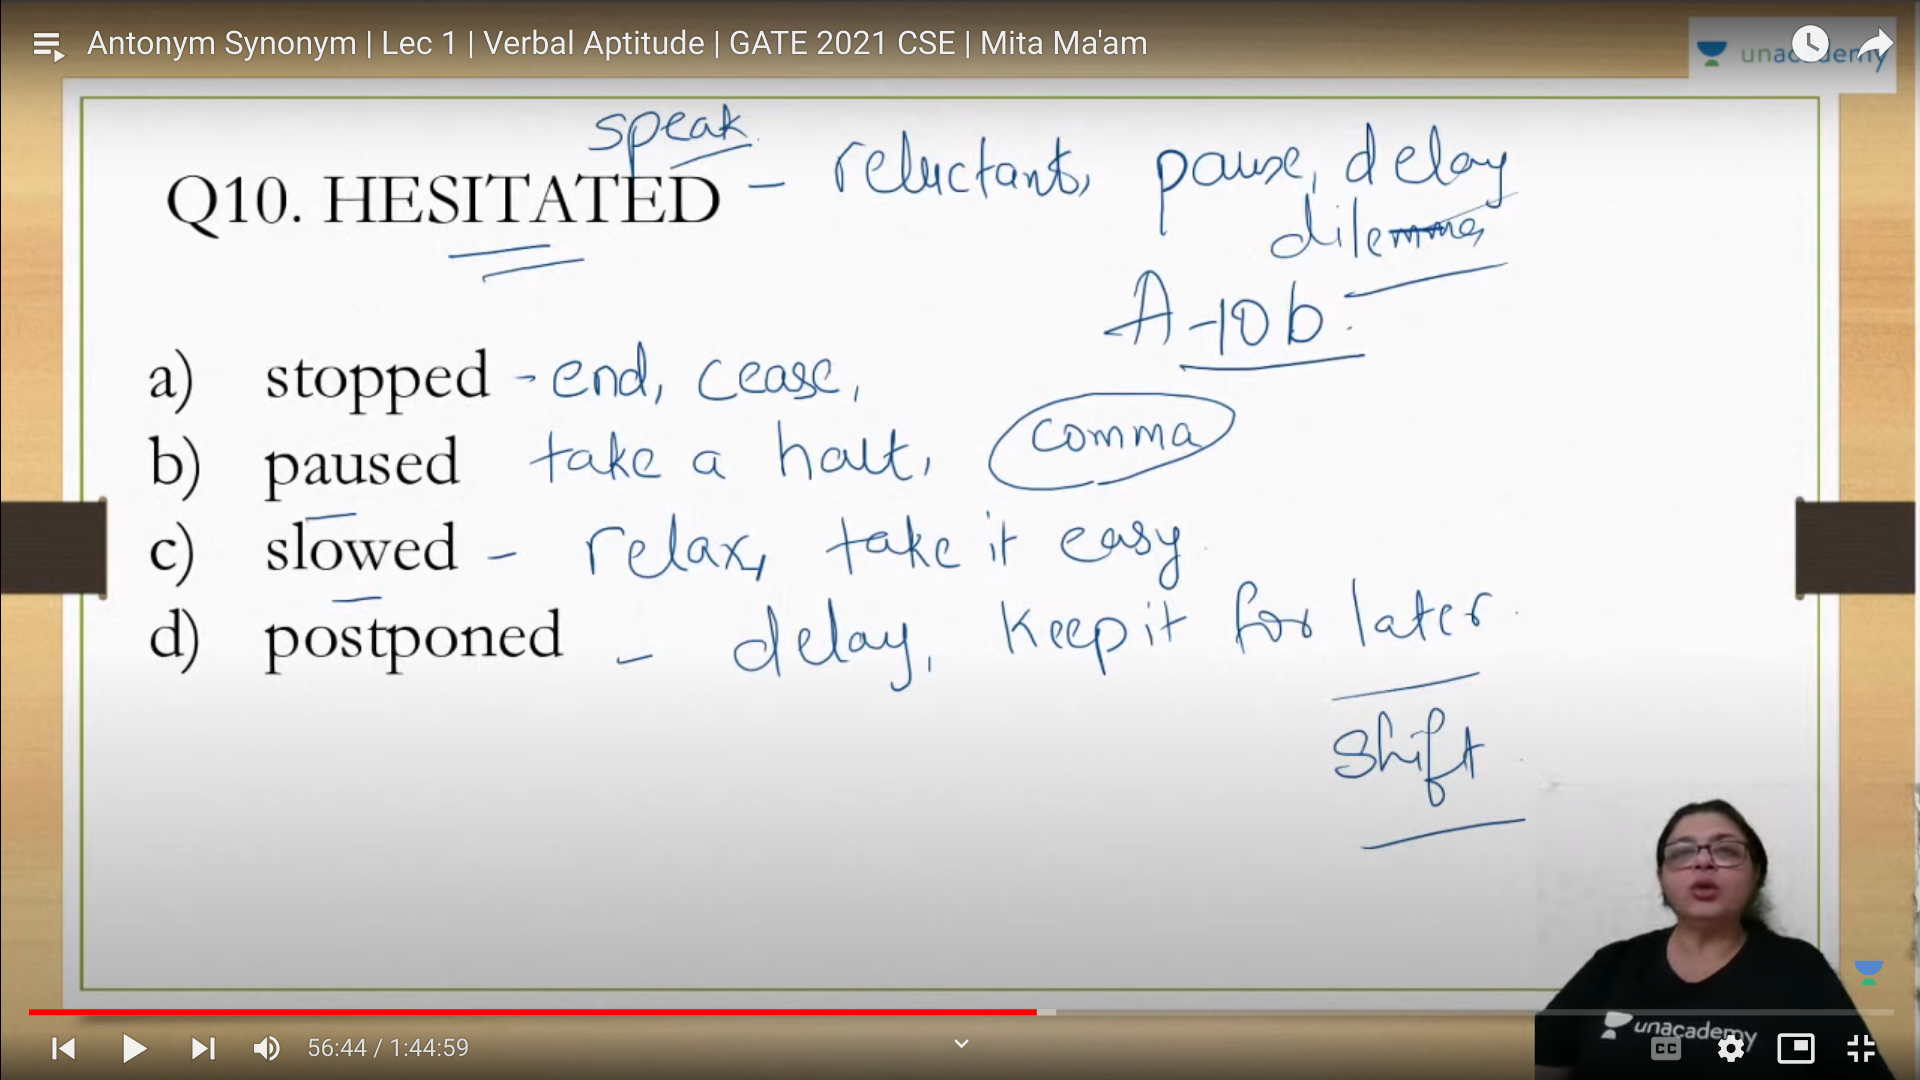 Antonym Synonym | Lec 1 | Verbal Aptitude | GATE 2021 CSE | Mita Ma'am
unacademy
speak
Q10. HESITATED – reluctant, pause, delay
dilemma,
A-10 b.
a) stopped - end, cease,
b) paused take a halt, comma
c) slowed - relax, take it easy
d) postponed - delay, keep it for later
shift
unacademy
56:44 / 1:44:59
CC